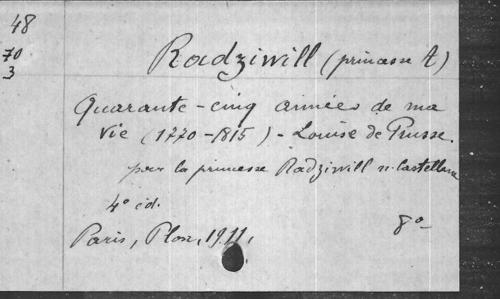 48
70
3
Radziwill (princesse A)
Quarante-cinq années de ma
vie (1770-1815) - Louise de Prusse.
par la princesse Radziwill n. Castellane
4e éd.
Paris, Plon, 1911,
8o